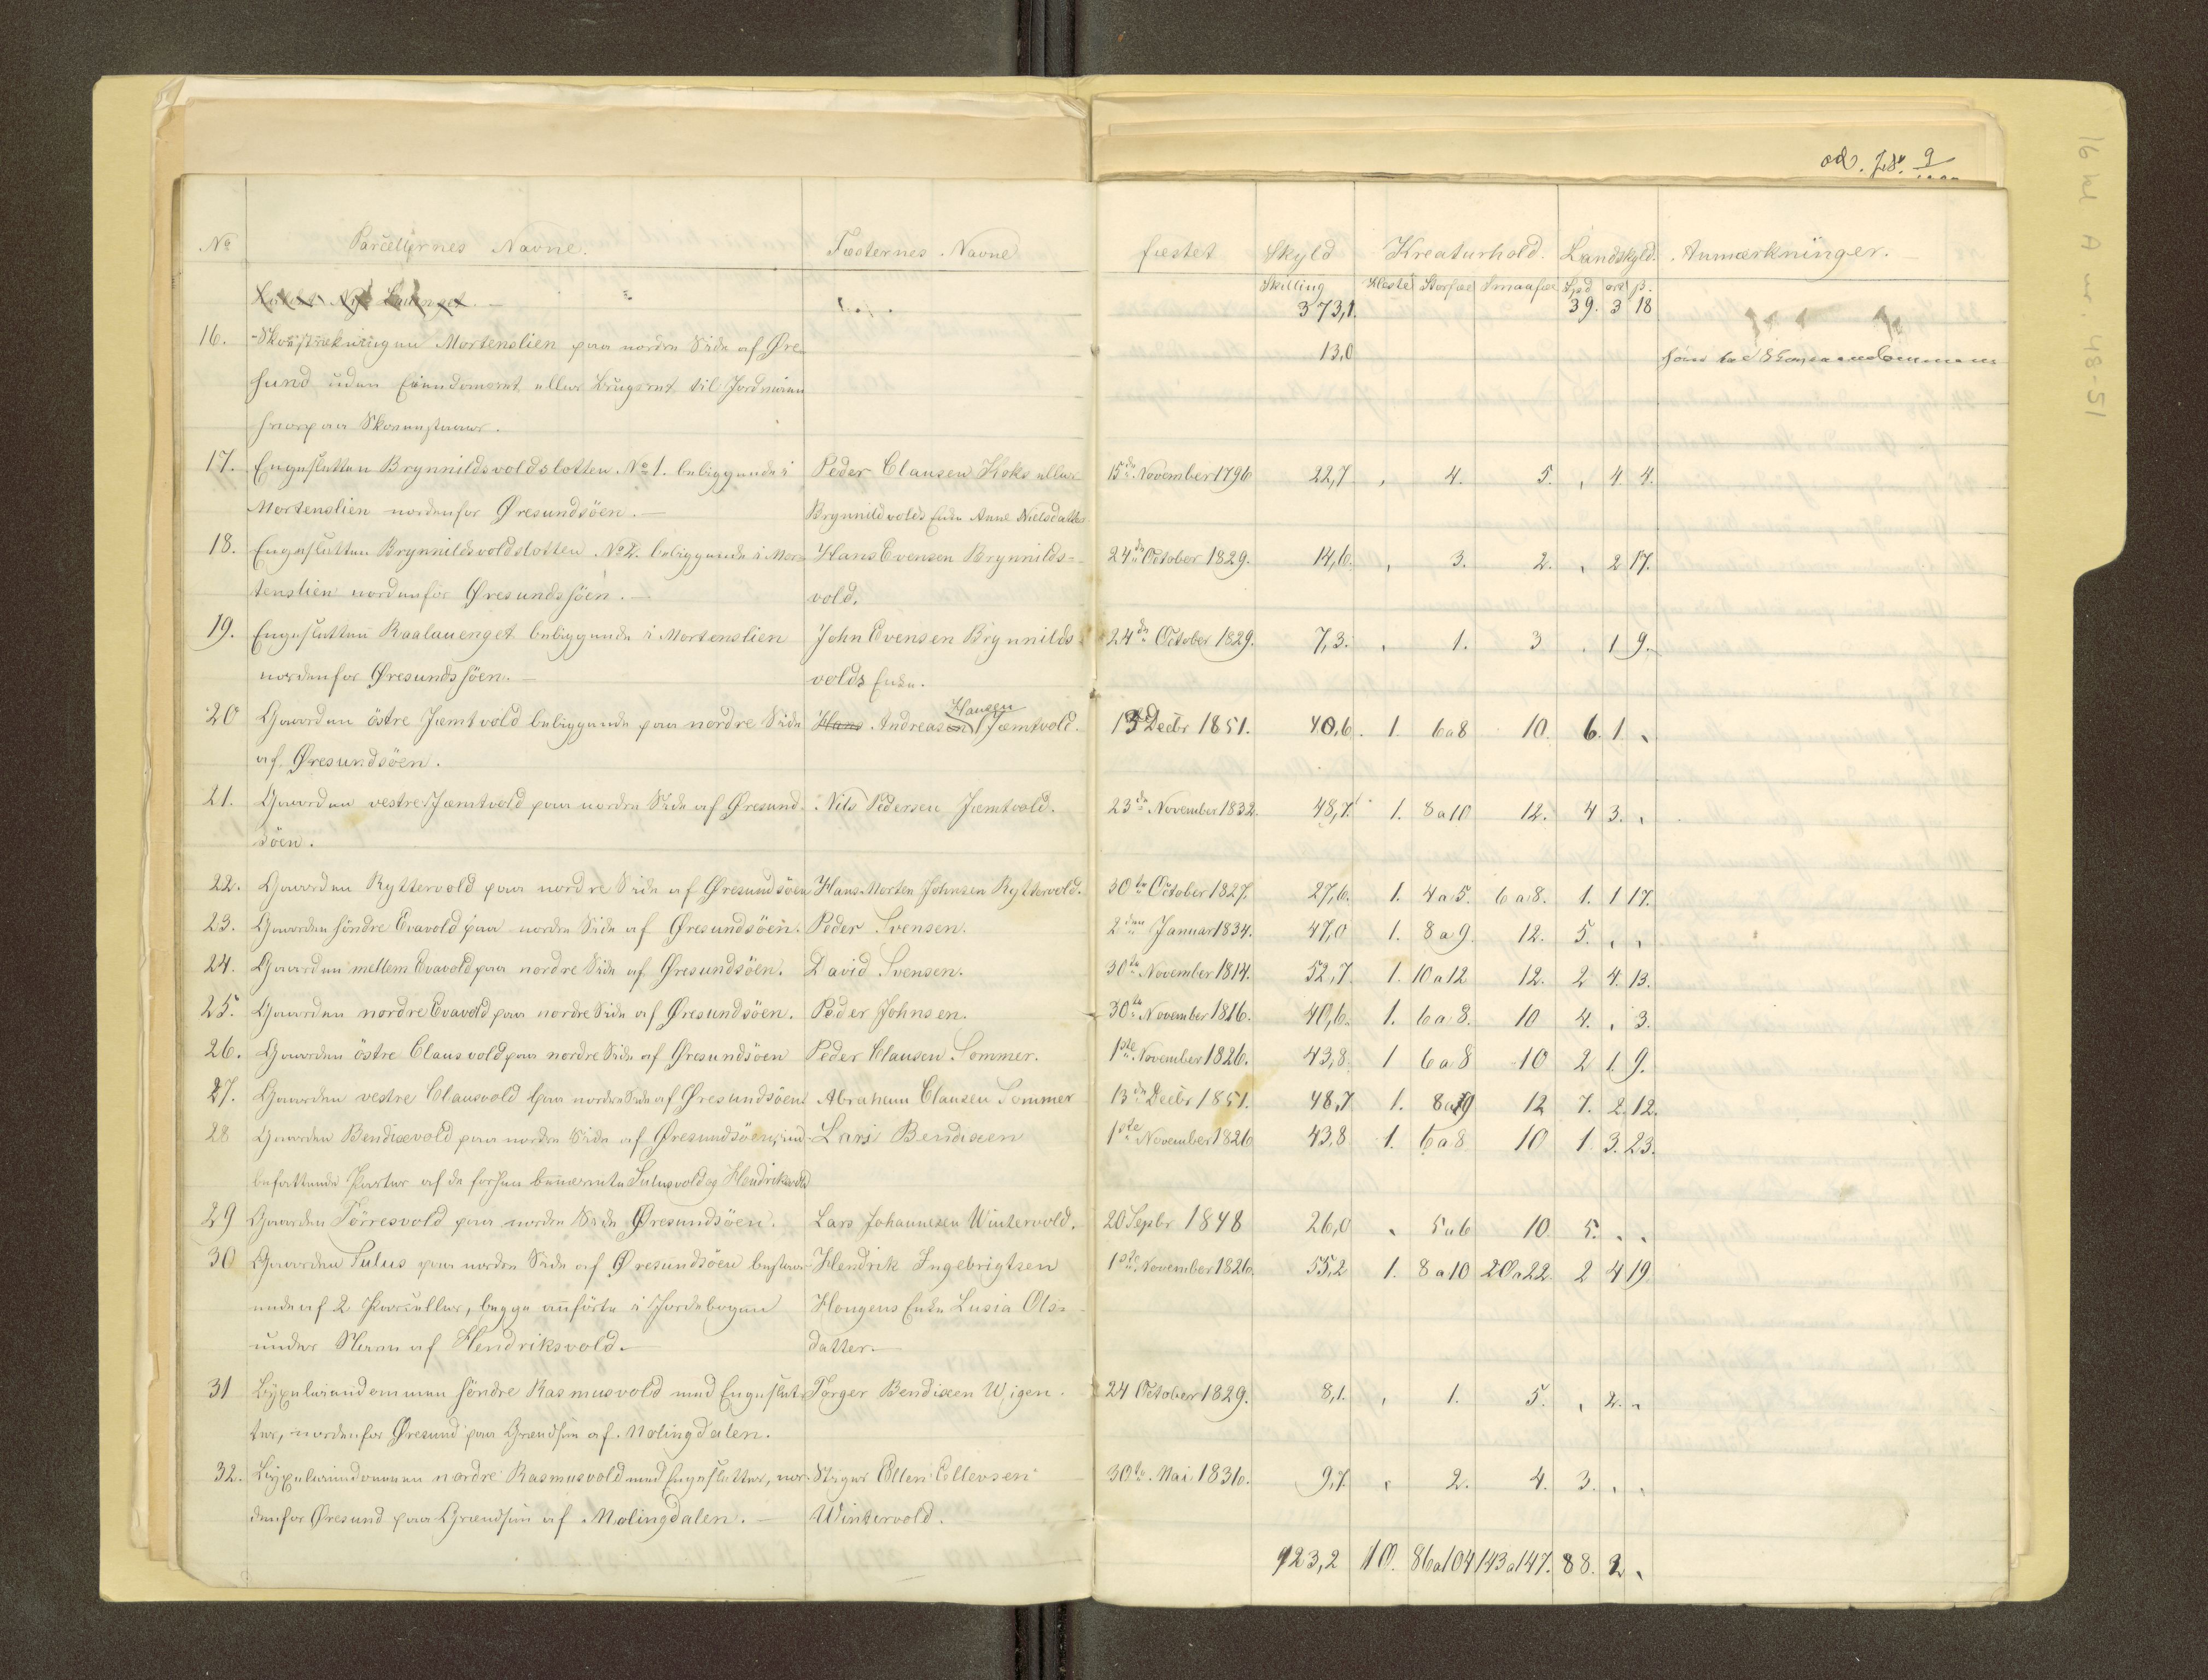 od. Js. 9
16 kl A nr. 48-51
No Parcellernes Navne. Fæsternes Navne fæstet Skyld Kreaturhold. Landskyld. Anmærkninger.
Skilling Heste Storfæ Smaafæ Spd ort β.
373,1. 39. 3 18
16. Skovstrækningen Mortenslien paa nordre Side af Øre- 13,0
sund uden Eiendomsret eller Brugsret til Jordveien
hvorpaa Skoven staaer.
17. Engesletten Brynnildsvoldslotten No 1. beliggende i Peder Clausen Hoks eller 15de November 1796 22,7 , 4. 5. , 4. 4.
Mortenslien nordenfor Øresundsöen. — Brynnildvolds Enke Anne Nielsdatter
18. Engesletten Brynnildsvoldslotten No 2. beliggende i Mor- Hans Evensen Brynnilds- 24de October 1829. 14,6. , 3. 2. , 2 17.
tenslien nordenfor Øresundssöen. — vold.
19. Engesletten Raalauenget beliggende i Mortenslien John Evensen Brynnilds- 24de October 1829. 7,3. , 1. 3 , 1 9.
nordenfor Øresundssöen. — volds Enke.
20 Gaarden östre Jæmtvold beliggende paa nordre Side Hans Andreasen Hansen Jæmtvold. 13de Decbr 1851. 40,6. 1. 6 a 8 10. 6. 1. ,
af Øresundsöen.
21. Gaarden vestre Jæmtvold paa nordre Side af Øresund- Nils Pedersen Jæmtvold. 23de November 1832. 48,7. 1. 8 a 10 12. 4 3. ,
söen.
22. Gaarden Ryttervold paa nordre Side af Øresundsöen Hans Morten Johnsen Ryttervold. 30te October 1827. 27,6. 1. 4 a 5. 6 a 8. 1. 1 17.
23. Gaarden söndre Evavold paa nordre Side af Øresundsöen. Peder Svensen. 2den Januar 1834. 47,0 1. 8 a 9. 12. 5. , ,
24. Gaarden mellem Evavold paa nordre Side af Øresundsöen. David Svensen. 30te November 1814. 52,7. 1. 10 a 12 12. 2 4. 13.
25. Gaarden nordre Evavold paa nordre Side af Øresundsöen. Peder Johnsen. 30te November 1816. 40,6. 1. 6 a 8. 10 4. , 3.
26. Gaarden östre Clausvold paa nordre Side af Øresundsöen Peder Clausen Sommer. 1ste November 1826. 43,8. 1 6 a 8 10 2 1. 9.
27. Gaarden vestre Clausvold paa nordre Side af Øresundsöen Abraham Clausen Sommer 13de Decbr 1851. 48,7 1. 8 a 9 12 7. 2. 12.
28 Gaarden Bendixvold paa nordre Side af Øresundsöen, ind- Lars Bendixen 1ste November 1826 43,8 1. 6 a 8 10 1. 3. 23.
befattende Parter af de forhen benævnte Sulusvold og Hendriksvold
29 Gaarden Törresvold paa nordre Side Øresundsöen. Lars Johannesen Wintervold. 20 Sepbr 1848 26,0 , 5 a 6 10. 5. , ,
30 Gaarden Sulus paa nordre Side af Øresundsöen bestaa- Hendrik Ingebrigtsen 1ste November 1826. 55,2 1. 8 a 10 20 a 22 2 4 19
ende af 2 Parceller, begge anförte i Jordebogen Hougens Enke Lusia Ols-
under Navn af Hendriksvold. datter.
31 Byxeleiendommen söndre Rasmusvold med Engeslet- Torger Bendixen Wigen. 24 October 1829. 8,1. , 1. 5. , 2. ,
ter, nordenfor Øresund paa Grændsen af Malingdalen.
32. Byxeleiendommen nordre Rasmusvold med Engesletter, nor- Stiger Ellen Ellevsen 30te Mai 1836. 9,7. , 2. 4. 3. , ,
denfor Øresund paa Grændsen af Malingdalen. — Wintervold.
923,2 10. 86 a 104 143 a 147. 88. 2 ,